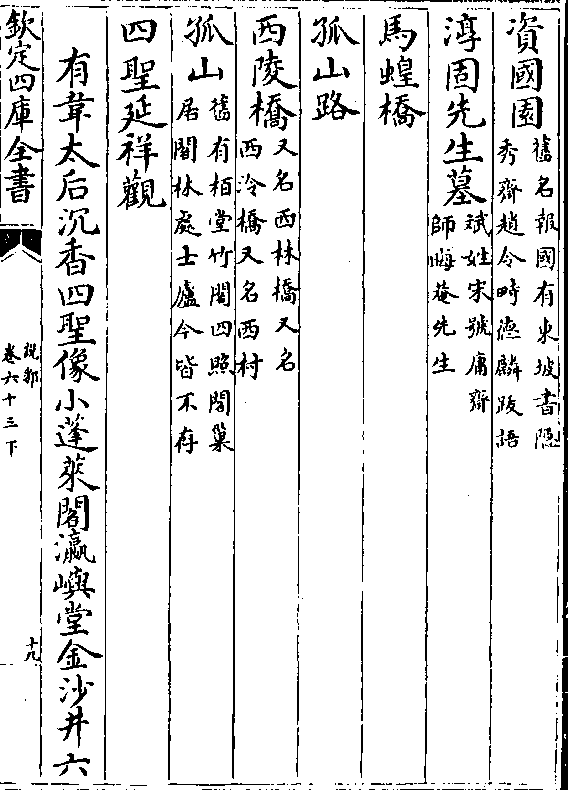 資國園舊名報國有東坡書隱秀齋趙令畤德麟跋語
淳固先生墓斌姓宋號庸齋師晦菴先生
馬蝗橋
孤山路
西陵橋又名西林橋又名西泠橋又名西村
孤山舊有柏堂竹閣四照閣巢居閣林處士廬今皆不存
四聖延祥觀
有韋太后沉香四聖像小蓬萊閣瀛嶼堂金沙井六
欽定四庫全書
說郛
卷六十三下
十九